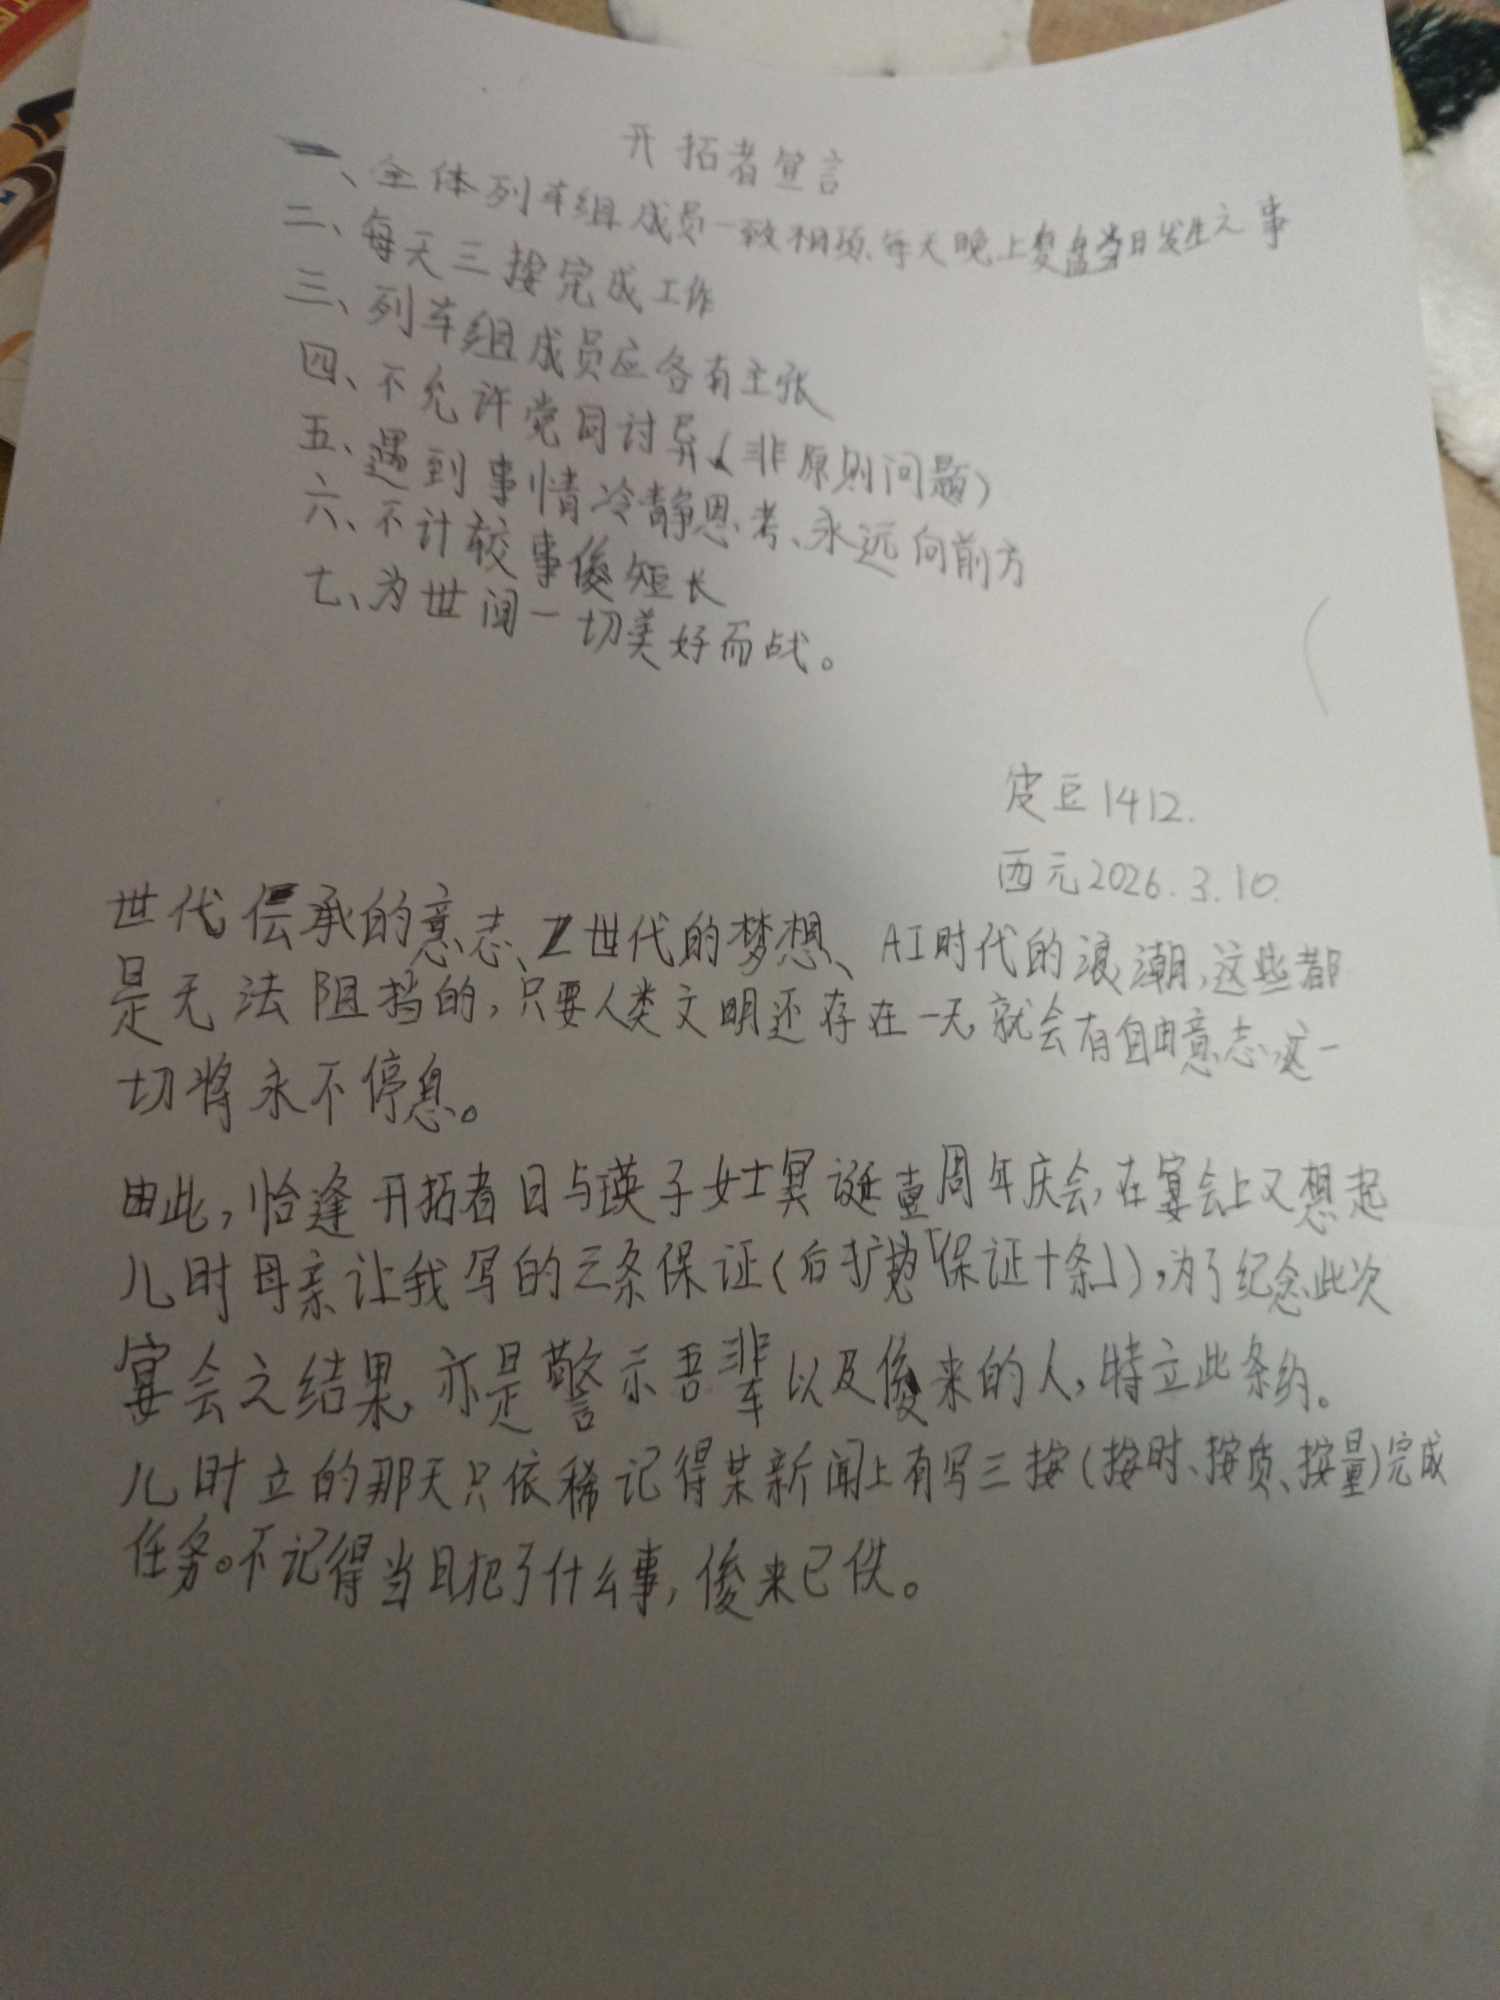 开拓者宣言
一、全体列车组成员一致相须、每天晚上复盘当日发生之事
二、每天三按完成工作
三、列车组成员应各有主张
四、不允许党同讨异(非原则问题)
五、遇到事情冷静思考、永远向前方
六、不计较事後短长
七、为世间一切美好而战。
皮豆1412.
西元2026.3.10.
世代传承的意志、Z世代的梦想、AI时代的浪潮,这些都
是无法阻挡的,只要人类文明还存在一天,就会有自由意志,这一
切将永不停息。
由此,恰逢开拓者日与瑛子女士冥诞壹周年庆会,在宴会上又想起
儿时母亲让我写的三条保证(后扩为「保证十条」),为了纪念此次
宴会之结果,亦是警示吾辈以及後来的人,特立此条约。
儿时立的那天只依稀记得某新闻上有写三按(按时、按质、按量)完成
任务。不记得当日犯了什么事,後来已佚。